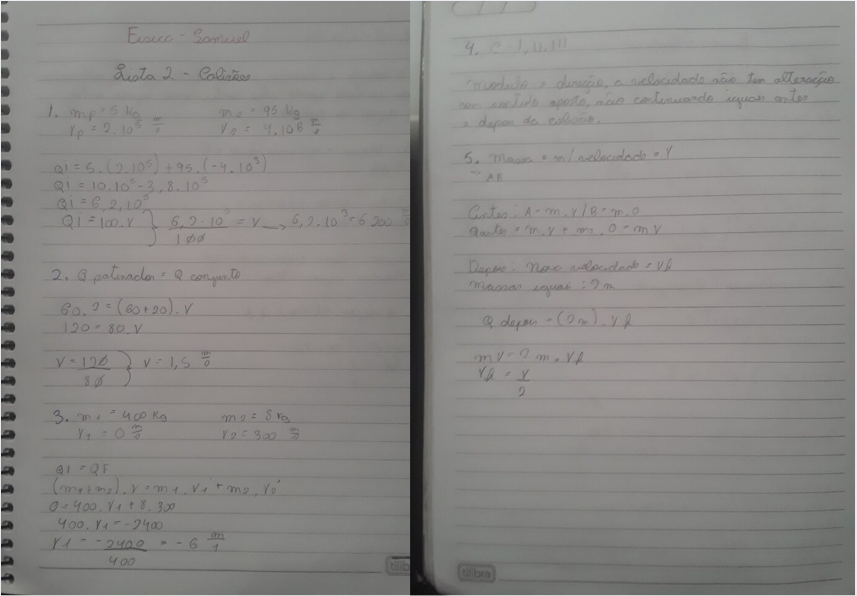 Física - Samuel
Lista 2 - Colisões
1. mp = 5 kg m2 = 95 kg
vp = 2.10⁵ m/s
Qi = 5.(2.10⁵) + 95.(-4.10³)
Qi = 10.10⁵ - 3,8.10⁵
Qi = 6,2.10⁵
Qi = 100.V } 6,2.10⁵/100 = V → 6,2.10³ = 6200
2. Q patinador = Q conjunto
60.2 = (60+20).V
120 = 80.V
V = 120/80 } V = 1,5 m/s
3. m1 = 400 Kg m2 = 8 kg
V1 = 0 m/s V2 = 300 m/s
Qi = QF
(m1+m2).V = m1.V1' + m2.V2'
0 = 400.V1 + 8.300
400.V1 = -2400
V1 = -2400/400 = -6 m/s
tilibra
4. C - I, II, III
módulo e direção, a velocidade não tem alteração
com sentido oposto, não continuando iguais antes
e depois da colisão.
5. Massa = m / velocidade = V
→ AB
Antes: A = m.V / B = m.0
Qantes = m.V + m.0 = mV
Depois: Nova velocidade = Vf
massas iguais: 2m
Q depois = (2m).Vf
mV = 2m.Vf
Vf = V/2
tilibra